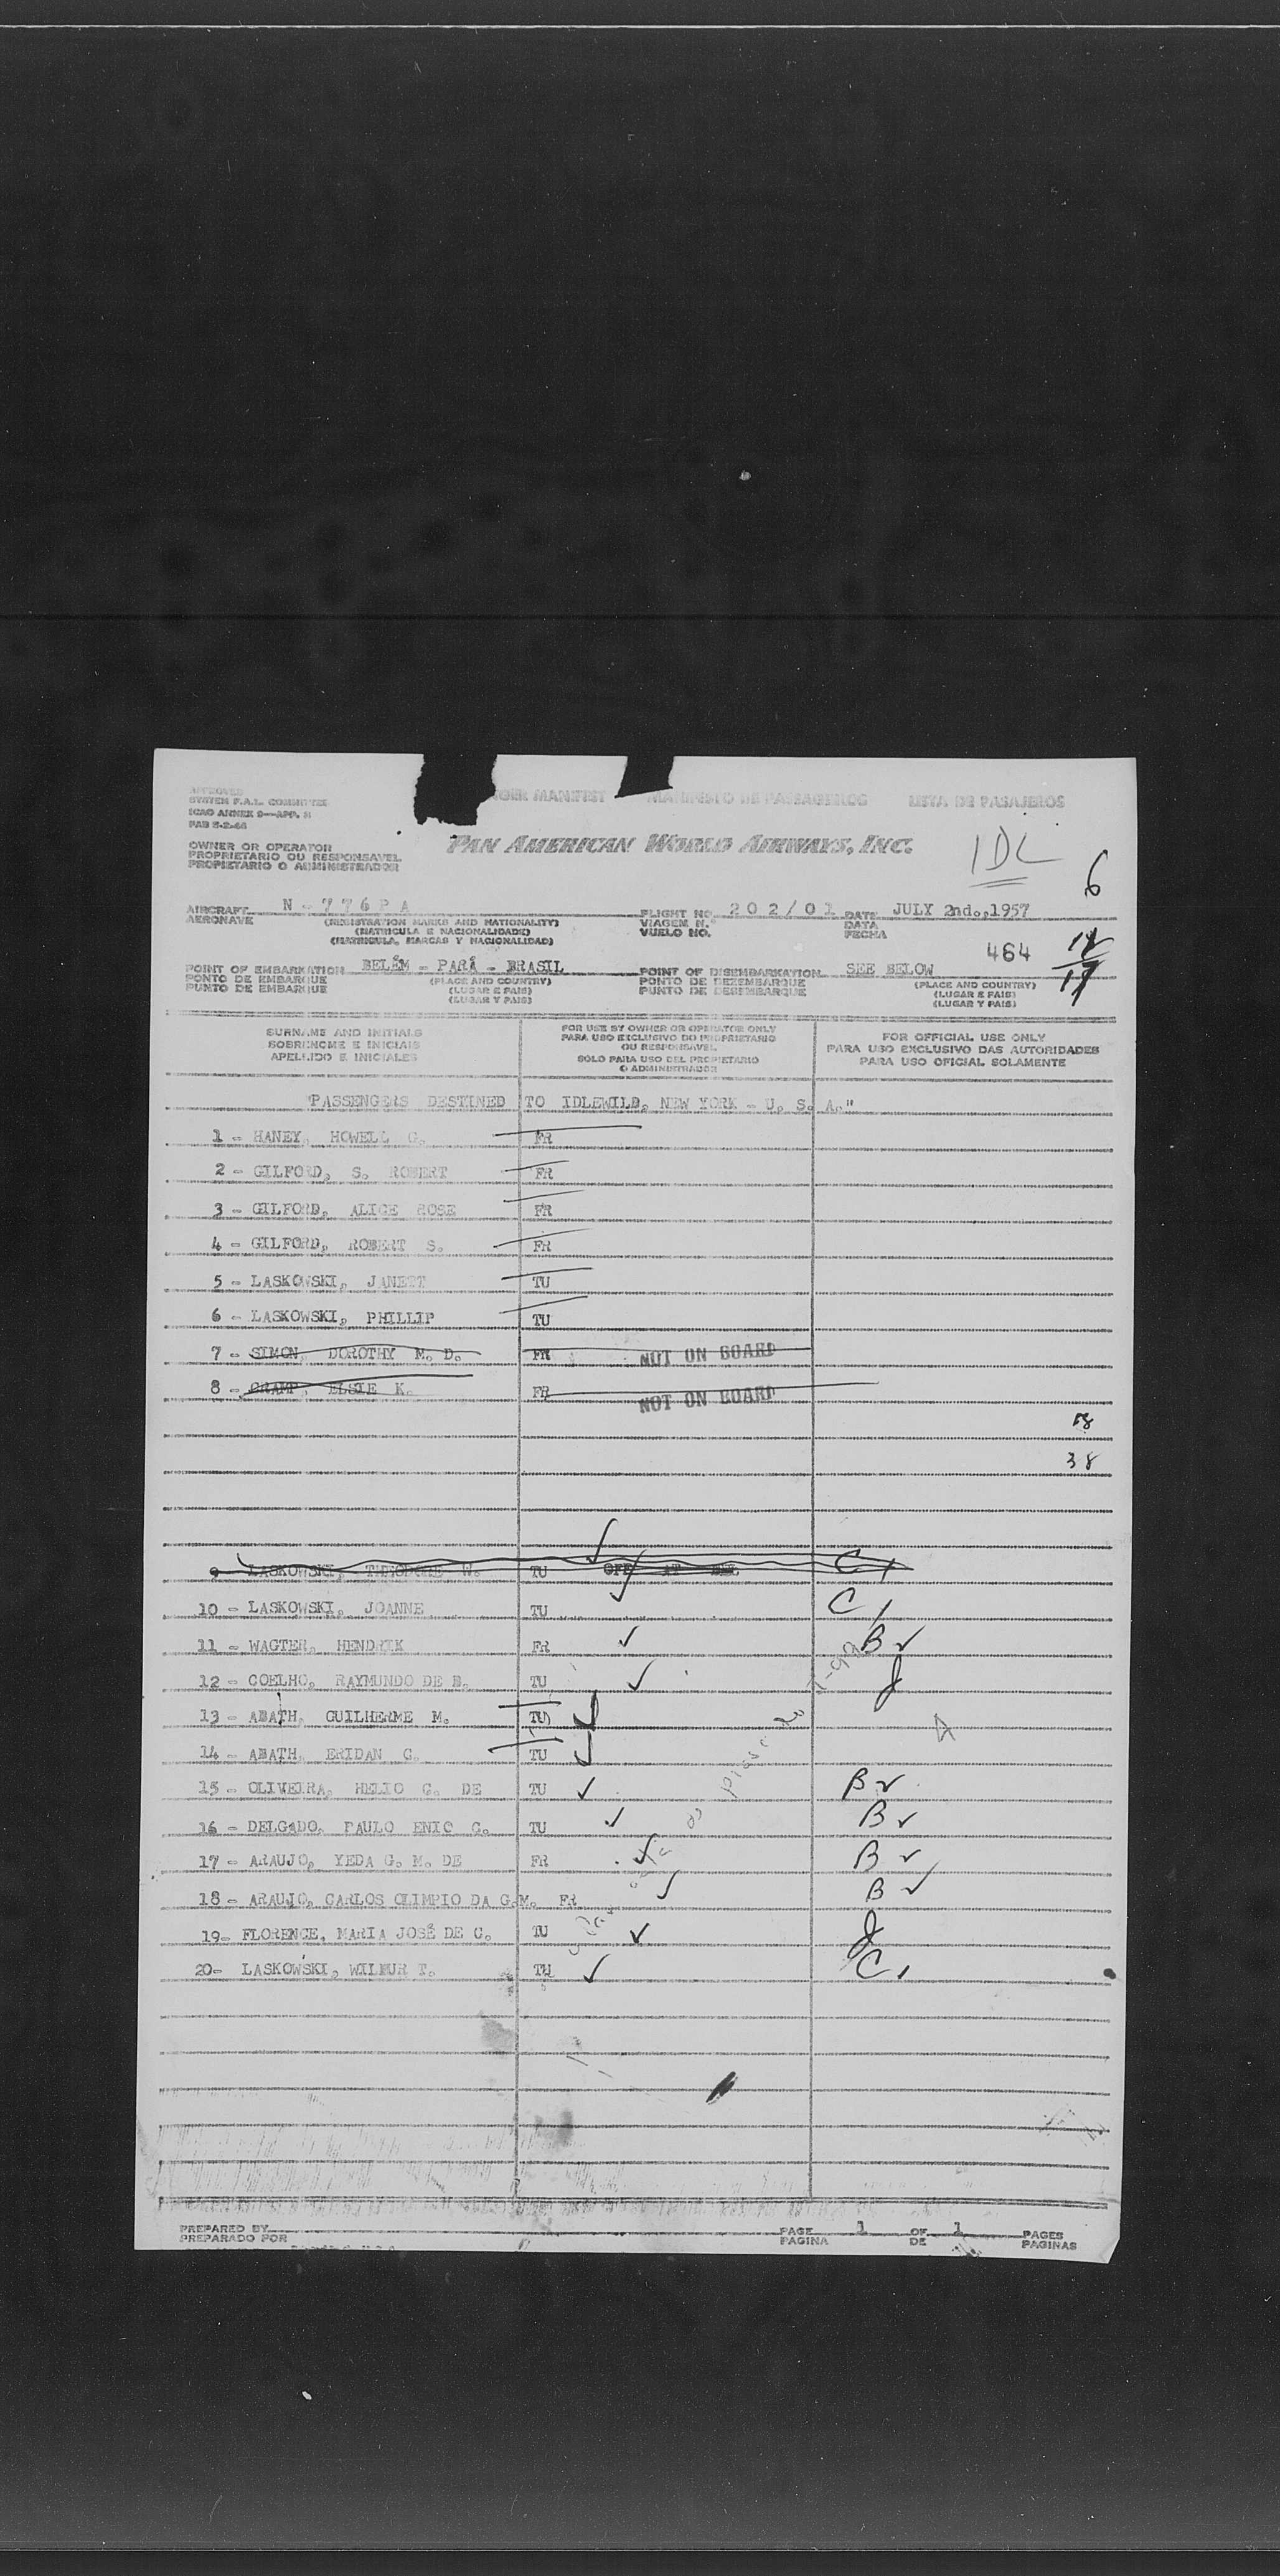 APPROVED
SYSTEM F.A.L. COMMITTEE
ICAO ANNEX 9—APP. H
MANIFEST MANIFESTO DE PASSAGEIROS LISTA DE PASAJEROS
PAN AMERICAN WORLD AIRWAYS, INC.
OWNER OR OPERATOR
PROPRIETARIO OU RESPONSAVEL
PROPIETARIO O ADMINISTRADOR
IDL
6
AIRCRAFT N-776PA FLIGHT NO. 202/01 DATE JULY 2nd.,1957
AERONAVE (REGISTRATION MARKS AND NATIONALITY) VIAGEM N.º DATA
(MATRICULA E NACIONALIDADE) VUELO NO. FECHA
(MATRICULA, MARCAS Y NACIONALIDAD)
464
POINT OF EMBARKATION BELÉM - PARÁ - BRASIL POINT OF DISEMBARKATION SEE BELOW
PONTO DE EMBARQUE (PLACE AND COUNTRY) PONTO DE DEZEMBARQUE (PLACE AND COUNTRY)
PUNTO DE EMBARQUE (LUGAR E PAIS) PUNTO DE DESEMBARQUE (LUGAR E PAIS)
(LUGAR Y PAIS) (LUGAR Y PAIS)
SURNAME AND INITIALS FOR USE BY OWNER OR OPERATOR ONLY FOR OFFICIAL USE ONLY
SOBRENOME E INICIAIS PARA USO EXCLUSIVO DO PROPRIETARIO PARA USO EXCLUSIVO DAS AUTORIDADES
APELLIDO E INICIALES OU RESPONSAVEL PARA USO OFICIAL SOLAMENTE
SOLO PARA USO DEL PROPIETARIO
O ADMINISTRADOR
"PASSENGERS DESTINED TO IDLEWILD, NEW YORK - U. S. A."
1 - HANEY, HOWELL G. FR
2 - GILFORD, S. ROBERT FR
3 - GILFORD, ALICE ROSE FR
4 - GILFORD, ROBERT S. FR
5 - LASKOWSKI, JANETT TU
6 - LASKOWSKI, PHILLIP TU
7 - SIMON, DOROTHY M. D. FR NOT ON BOARD
8 - CRAMP, ELSIE K. FR NOT ON BOARD
38
9 LASKOWSKI, THEODORE W. TU OFF AT BEL C
10 - LASKOWSKI, JOANNE TU C
11 - WAGTER, HENDRIK FR B
12 - COELHO, RAYMUNDO DE B. TU
13 - ABATH, GUILHERME M. TU
14 - ABATH, ERIDAN G. TU
15 - OLIVEIRA, HELIO G. DE TU B
16 - DELGADO, PAULO ENIO G. TU B
17 - ARAUJO, YEDA G. M. DE FR B
18 - ARAUJO, CARLOS OLIMPIO DA G.M. FR B
19- FLORENCE, MARIA JOSÉ DE C. TU
20- LASKOWSKI, WILBUR T. TU C
PREPARED BY PAGE 1 OF 1 PAGES
PREPARADO POR PAGINA DE PAGINAS